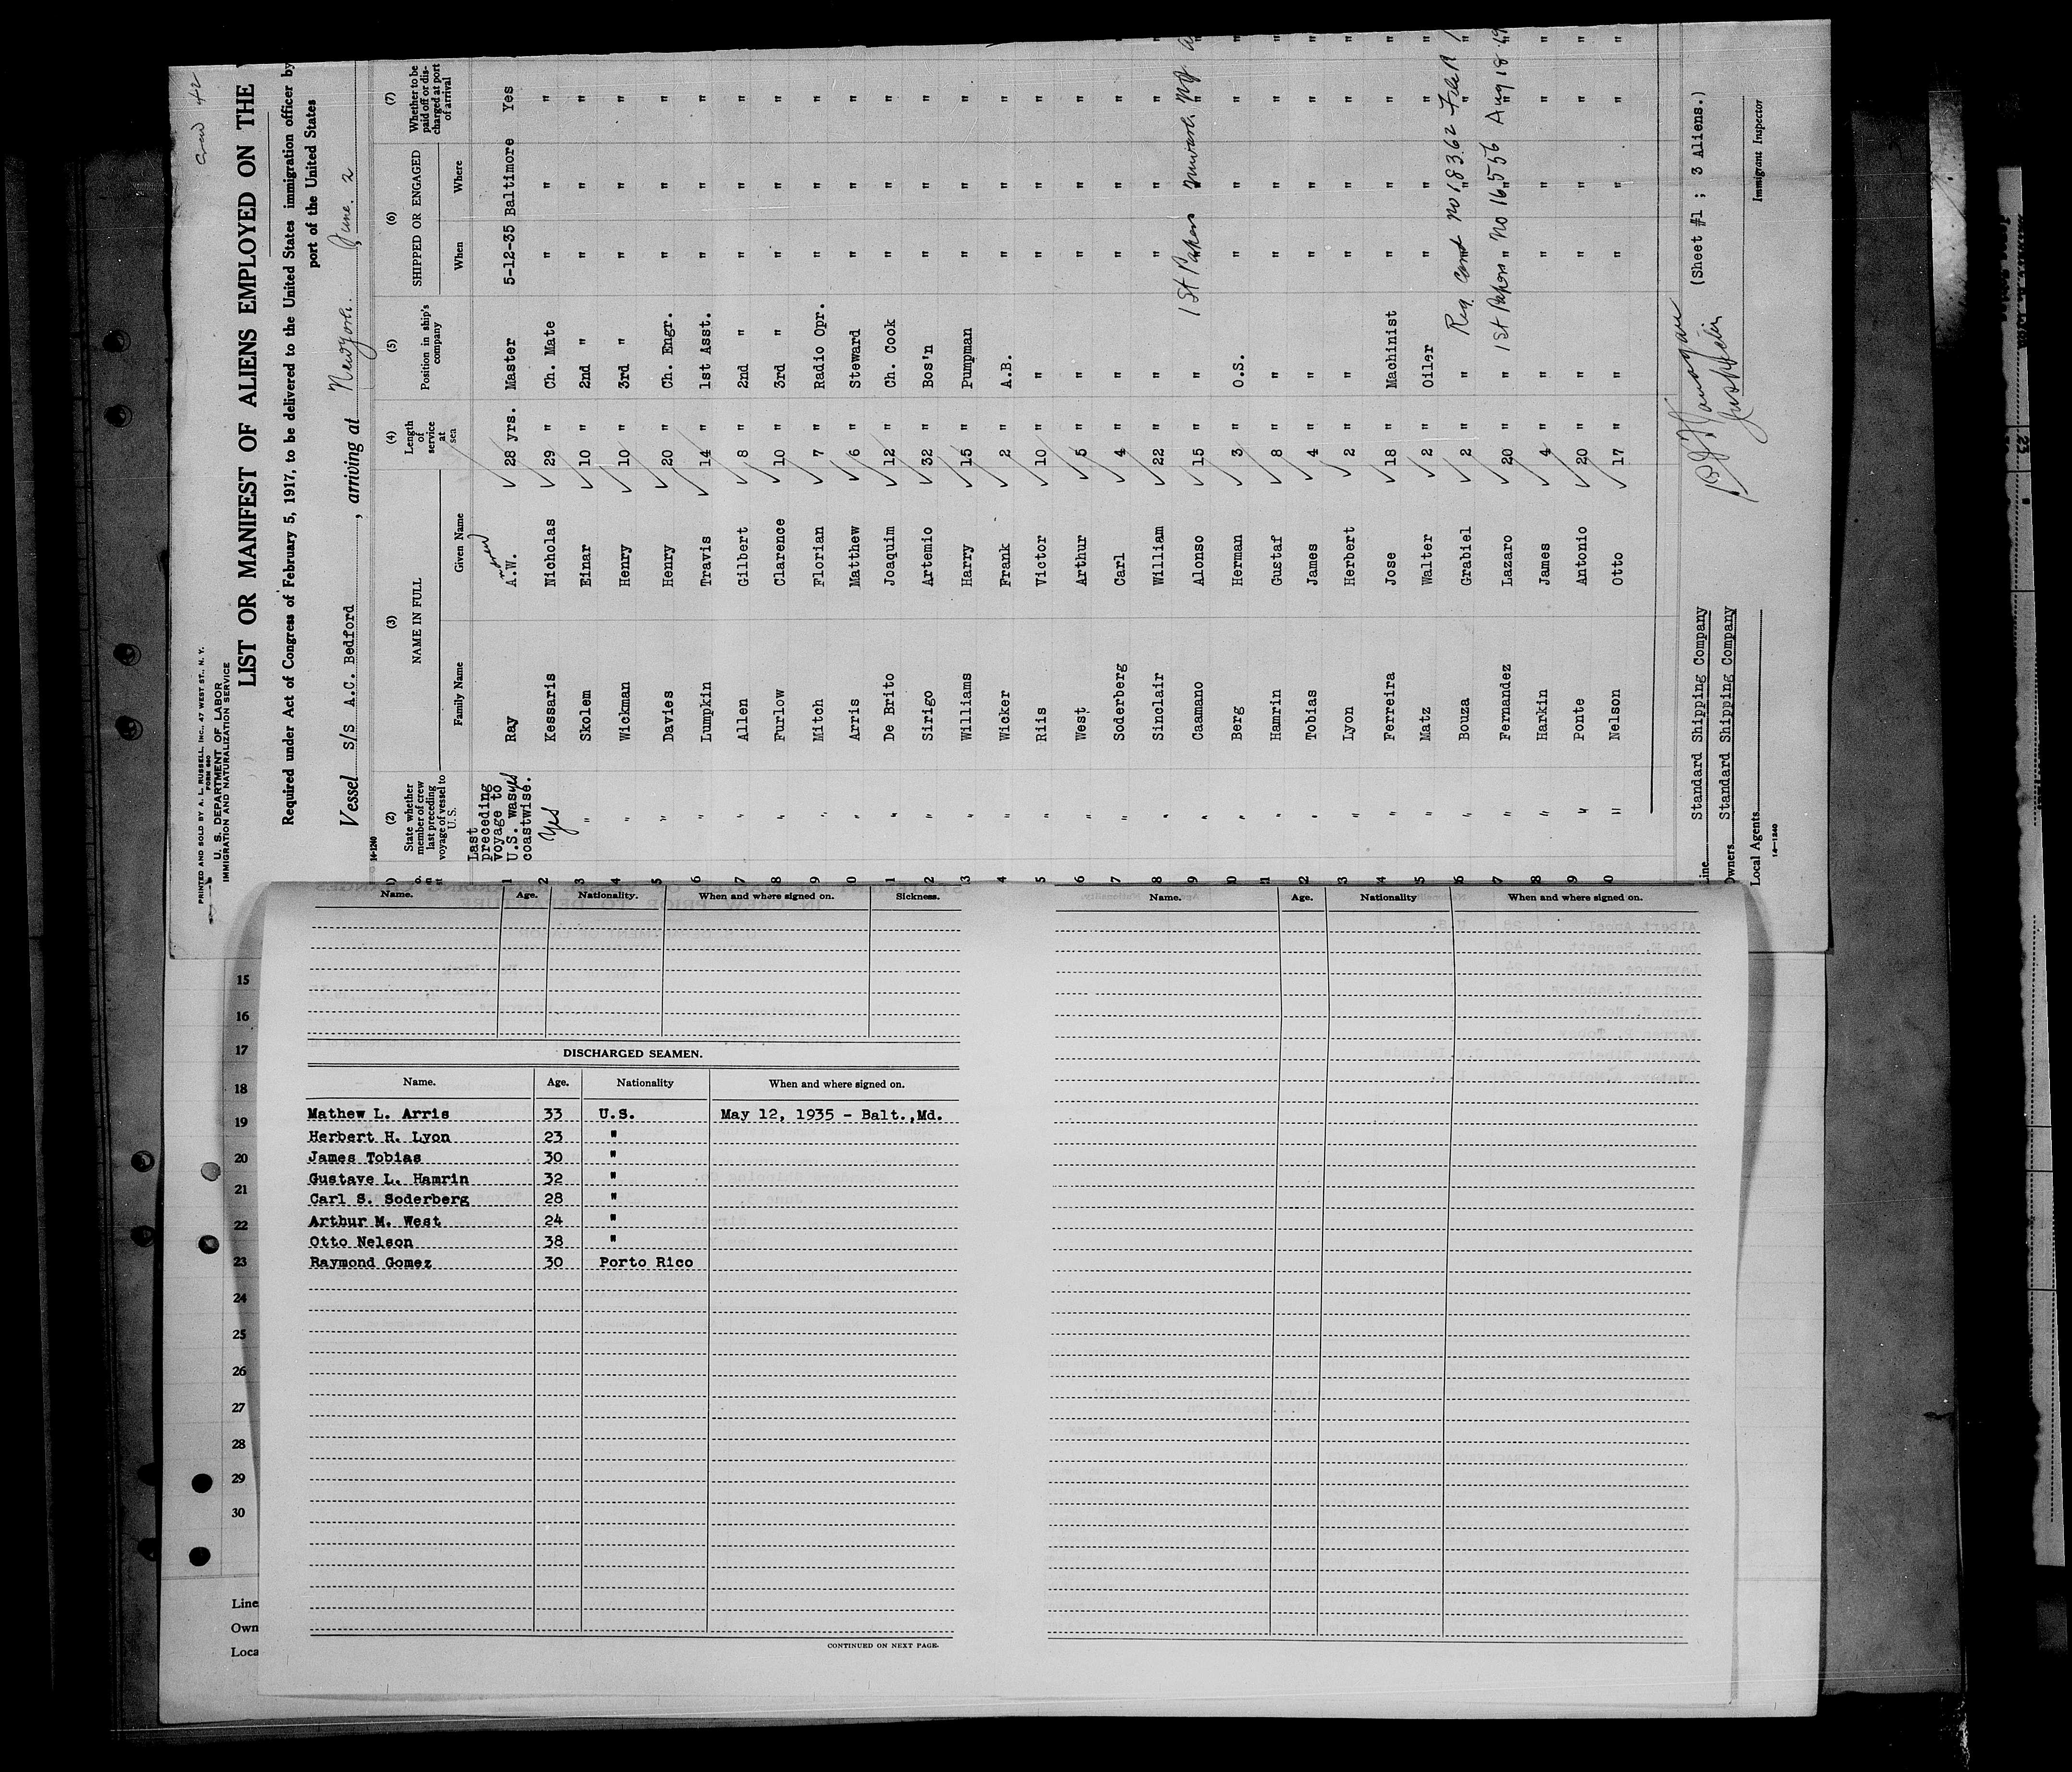 Crew 42
PRINTED AND SOLD BY A. L. RUSSELL, INC., 47 WEST ST., N. Y.
FORM 680
U. S. DEPARTMENT OF LABOR
IMMIGRATION AND NATURALIZATION SERVICE
LIST OR MANIFEST OF ALIENS EMPLOYED ON THE
Required under Act of Congress of February 5, 1917, to be delivered to the United States immigration officer by
port of the United States
Vessel S/S A.C. Bedford, arriving at New York. June. 2
14-1240
(2) (3) (4) (5) (6) (7)
State whether member of crew last preceding voyage of vessel to U.S. NAME IN FULL Length of service at sea Position in ship's company SHIPPED OR ENGAGED Whether to be paid off or discharged at port of arrival
Family Name Given Name When Where
Last preceding voyage to U.S. was coastwise.
1 yes Ray A.W. 28 yrs. Master 5-12-35 Baltimore Yes
2 Yes Kessaris Nicholas 29 " Ch. Mate " " "
3 " Skolem Einar 10 " 2nd " " " "
4 " Wickman Henry 10 " 3rd " " " "
5 " Davies Henry 20 " Ch. Engr. " " "
6 " Lumpkin Travis 14 " 1st Asst. " " "
7 " Allen Gilbert 8 " 2nd " " " "
8 " Furlow Clarence 10 " 3rd " " " "
9 " Mitch Florian 7 " Radio Opr. " " "
0 " Arris Matthew 6 " Steward " " "
1 " De Brito Joaquim 12 " Ch. Cook " " "
2 " Sirigo Artemio 32 " Bos'n " " "
3 " Williams Harry 15 " Pumpman " " "
4 " Wicker Frank 2 " A.B. " " "
5 " Riis Victor 10 " " " " "
6 " West Arthur 5 " " " " "
7 " Soderberg Carl 4 " " " " "
8 " Sinclair William 22 " " " " "
9 " Caamano Alonso 15 " " 1st Papers Newark. NJ.
0 " Berg Herman 3 " O.S. " " "
1 " Hamrin Gustaf 8 " " " " "
2 " Tobias James 4 " " " " "
3 " Lyon Herbert 2 " " " " "
4 " Ferreira Jose 18 " Machinist " " "
5 " Matz Walter 2 " Oiler " " "
6 " Bouza Grabiel 2 " " Reg Card no 18362
7 " Fernandez Lazaro 20 " " 1st Papers " No 16556 Aug 18
8 " Harkin James 4 " " " " "
9 " Ponte Antonio 20 " " " " "
0 " Nelson Otto 17 " " " " "
Line Standard Shipping Company (Sheet #1 ; 3 Aliens.)
Owners Standard Shipping Company
Inspector
Local Agents Immigrant Inspector
14—1240
Name. Age. Nationality. When and where signed on. Sickness.
DISCHARGED SEAMEN.
Name. Age. Nationality When and where signed on.
Mathew L. Arris 33 U.S. May 12, 1935 - Balt.,Md.
Herbert H. Lyon 23 "
James Tobias 30 "
Gustave L. Hamrin 32 "
Carl S. Soderberg 28 "
Arthur M. West 24 "
Otto Nelson 38 "
Raymond Gomez 30 Porto Rico
CONTINUED ON NEXT PAGE.
Name. Age. Nationality When and where signed on.
15
16
17
18
19
20
21
22
23
24
25
26
27
28
29
30
Line
Own
Loca